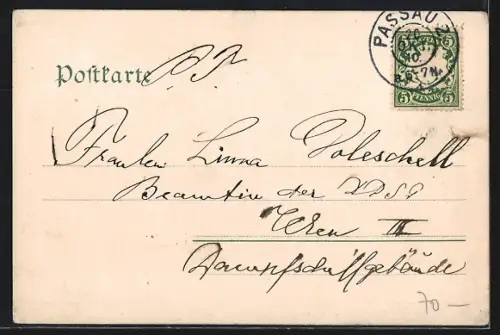 PASSAU 2
5 5
PFENNIG
Postkarte P. T.
Fräulein Linna Poleschell
Beamtin der
Wien III
Dampfschiffgebäude
70 —